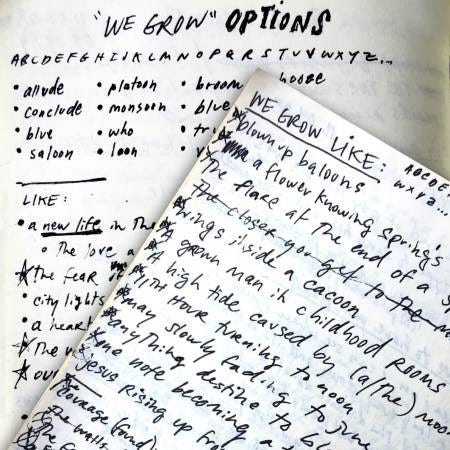 "WE GROW" OPTIONS
ABCDEFGHIJKLMNOPQRSTUVWXYZ...
• allude
• conclude
• blue
• saloon
• platoon
• monsoon
• who
• loon
• broom
• blue
• tr
LIKE:
• a new life in the
• The love a
The fear
• city lights
• a hear
The
our
WE GROW LIKE:
ABCDE
WXYZ...
blown up baloons
a flower knowing spring's
The flare at the end of a
The closer you get to the
wings inside a cacoon
A grown man in childhood rooms
A high tide caused by (a/the) moo
11th HOUR turning to noon
may slowly fading to june
anything destine to bl
one note becoming a
Jesus Rising up fro
courage (found)
The walls
The